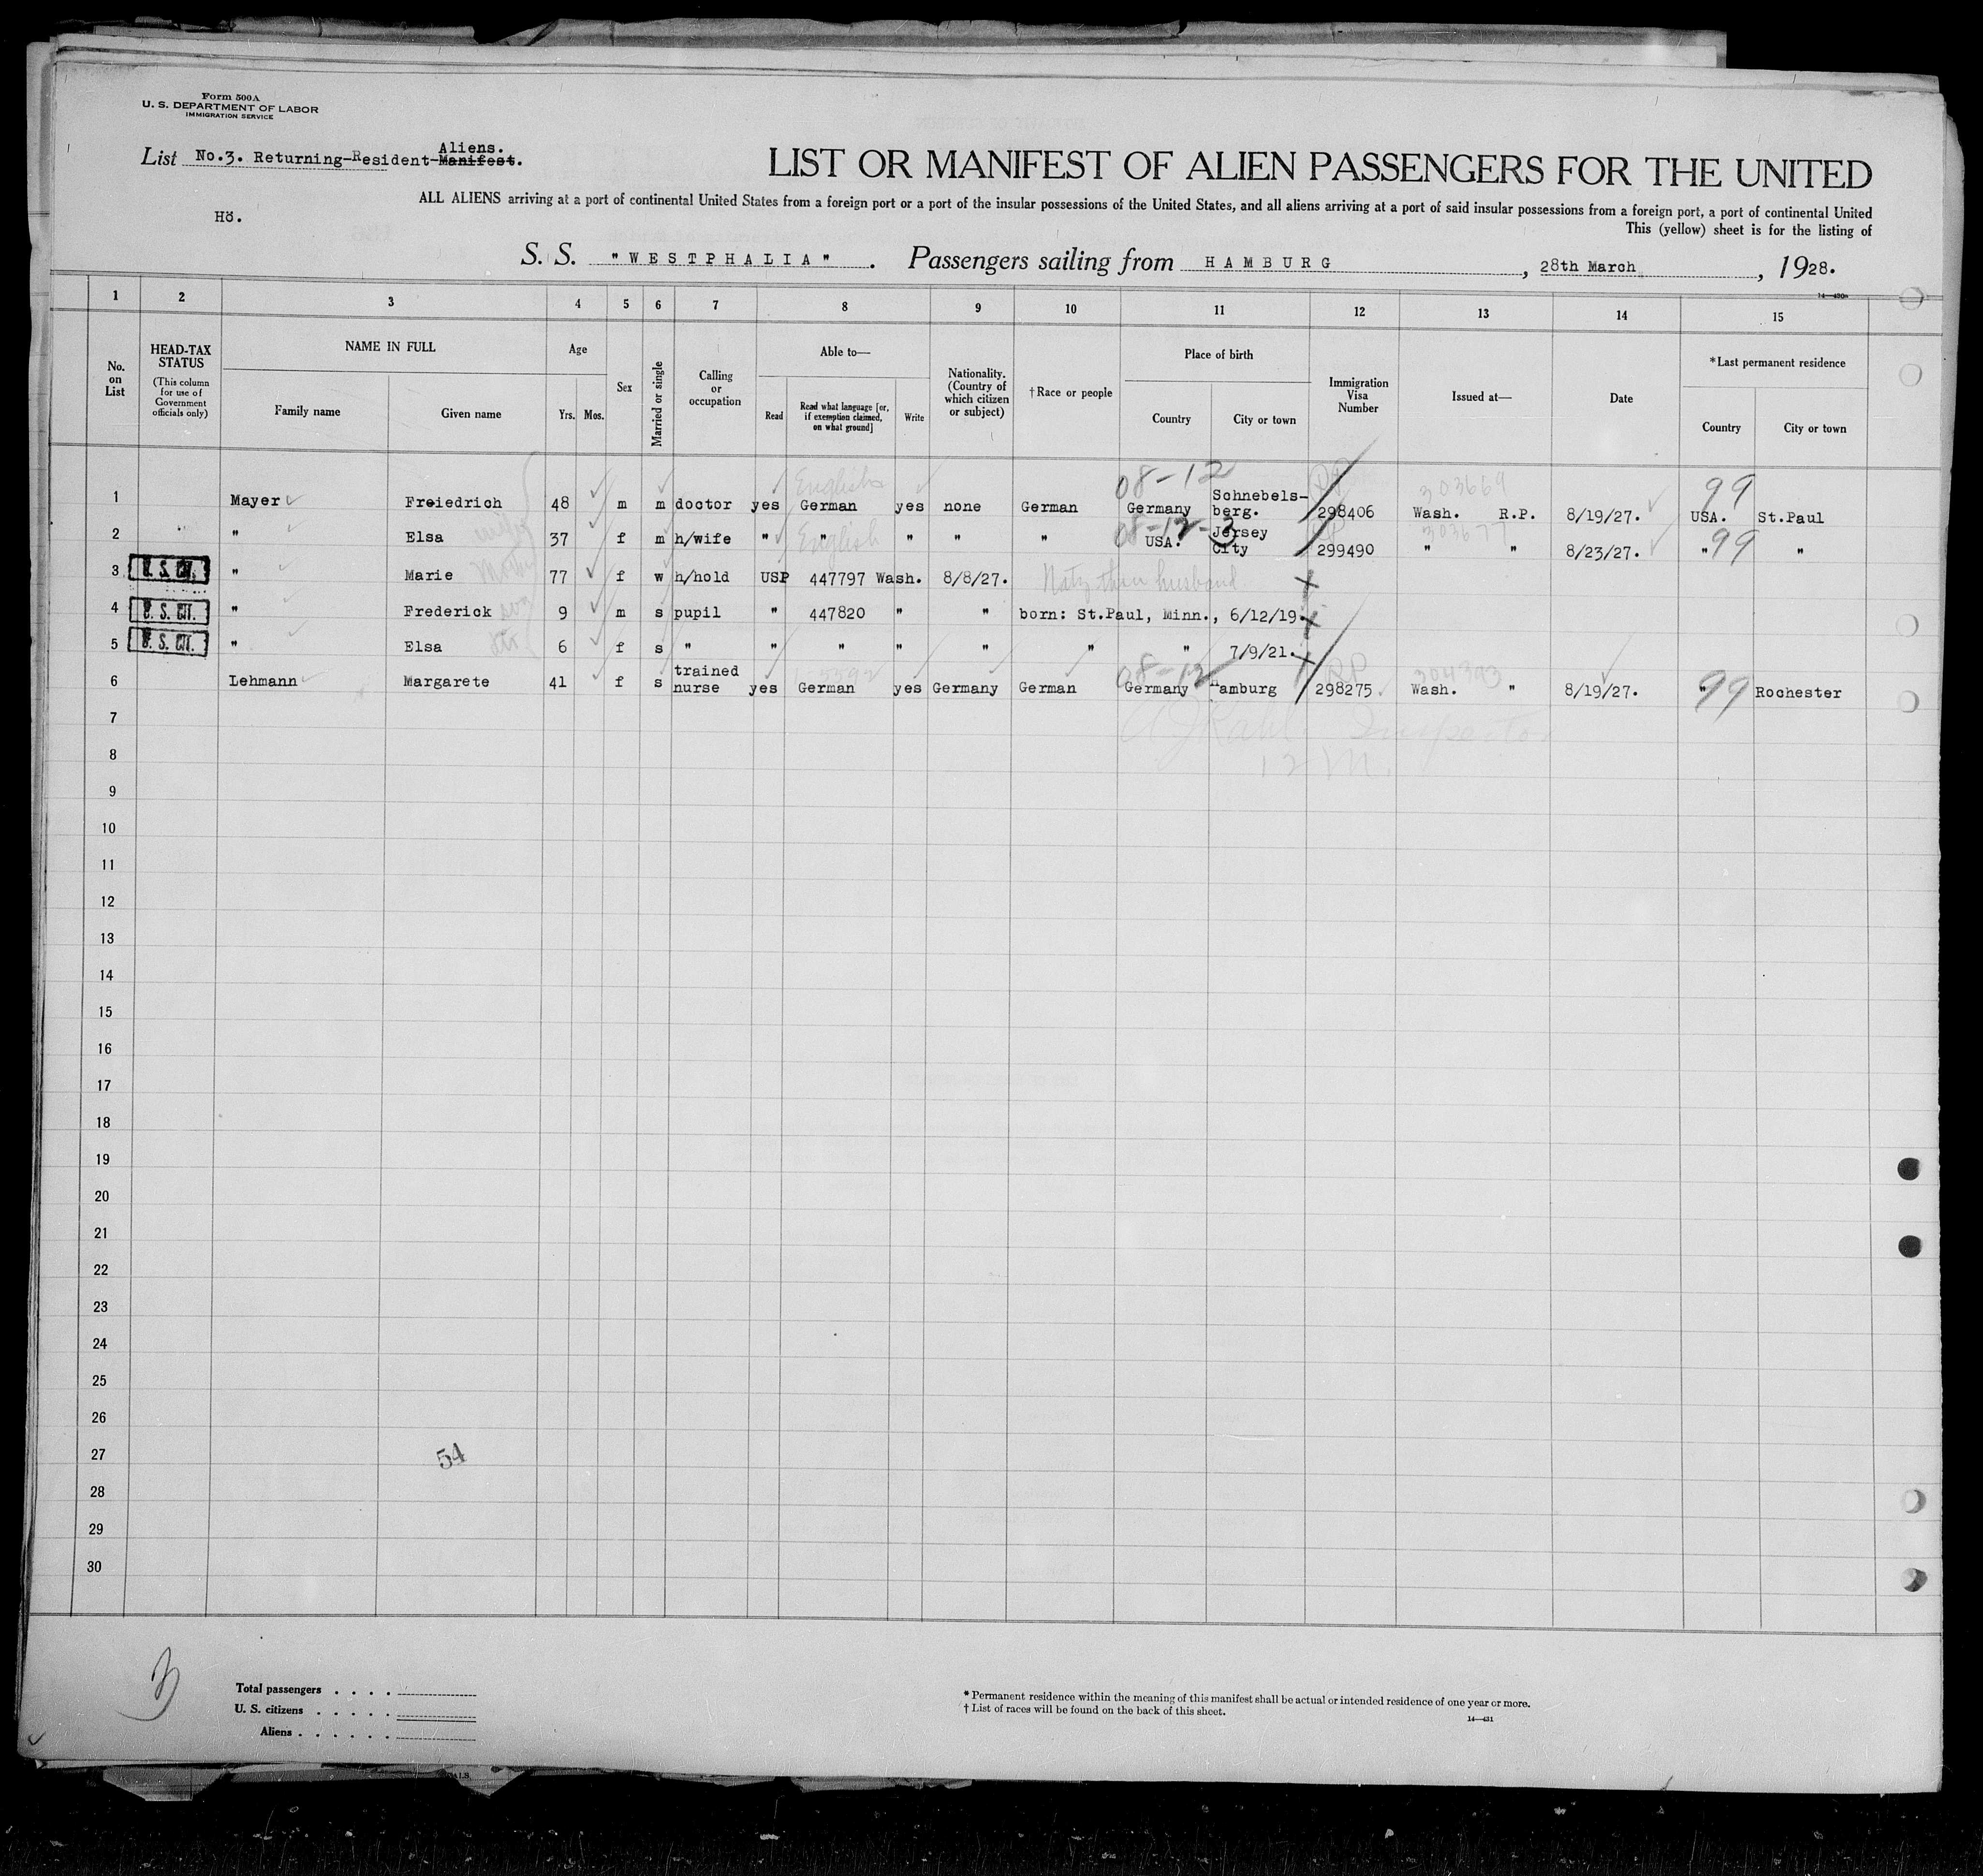 Form 500A
U. S. DEPARTMENT OF LABOR
IMMIGRATION SERVICE
Aliens.
List No.3. Returning-Resident-Manifest.
LIST OR MANIFEST OF ALIEN PASSENGERS FOR THE UNITED
ALL ALIENS arriving at a port of continental United States from a foreign port or a port of the insular possessions of the United States, and all aliens arriving at a port of said insular possessions from a foreign port, a port of continental United
Hö.
This (yellow) sheet is for the listing of
S. S. "WESTPHALIA". Passengers sailing from HAMBURG, 28th March, 1928.
1 2 3 4 5 6 7 8 9 10 11 12 13 14 15
No. on List
HEAD-TAX STATUS
(This column for use of Government officials only)
NAME IN FULL
Family name Given name
Age
Yrs. Mos.
Sex
Married or single
Calling or occupation
Able to—
Read Read what language [or, if exemption claimed, on what ground] Write
Nationality. (Country of which citizen or subject)
† Race or people
Place of birth
Country City or town
Immigration Visa Number
Issued at—
Date
* Last permanent residence
Country City or town
English 08-12 RP 303669 99
1 Mayer Freiedrich 48 m m doctor yes German yes none German Germany Schnebels-berg. 298406 Wash. R.P. 8/19/27. USA. St.Paul
wife English 08-12-3 RP 303677 99
2 " Elsa 37 f m h/wife " " " " " USA. Jersey City 299490 " " 8/23/27. " "
3 U.S. CIT. " Marie 77 f w h/hold USP 447797 Wash. 8/8/27. Natz thru husband
4 U.S. CIT. " Frederick son 9 m s pupil " 447820 " " born: St.Paul, Minn., 6/12/19.
5 U.S. CIT. " Elsa 6 f s " " " " " " " 7/9/21.
08-12 RP 99
6 Lehmann Margarete 41 f s trained nurse yes German yes Germany German Germany Hamburg 298275 Wash. " 8/19/27. " Rochester
7
Inspector
8
12 M.
9
10
11
12
13
14
15
16
17
18
19
20
21
22
23
24
25
26
27
54
28
29
30
3
Total passengers . . . .
U. S. citizens . . . . .
Aliens . . . . . .
* Permanent residence within the meaning of this manifest shall be actual or intended residence of one year or more.
† List of races will be found on the back of this sheet.
14—431